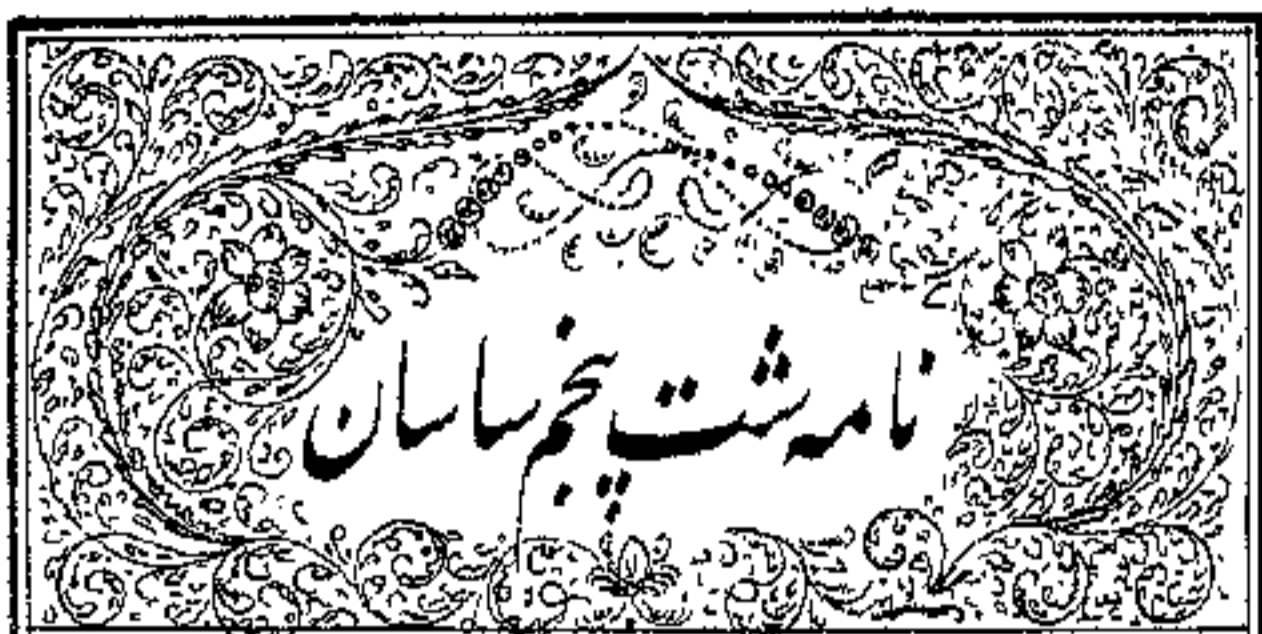 نامه شت پنجم ساسان